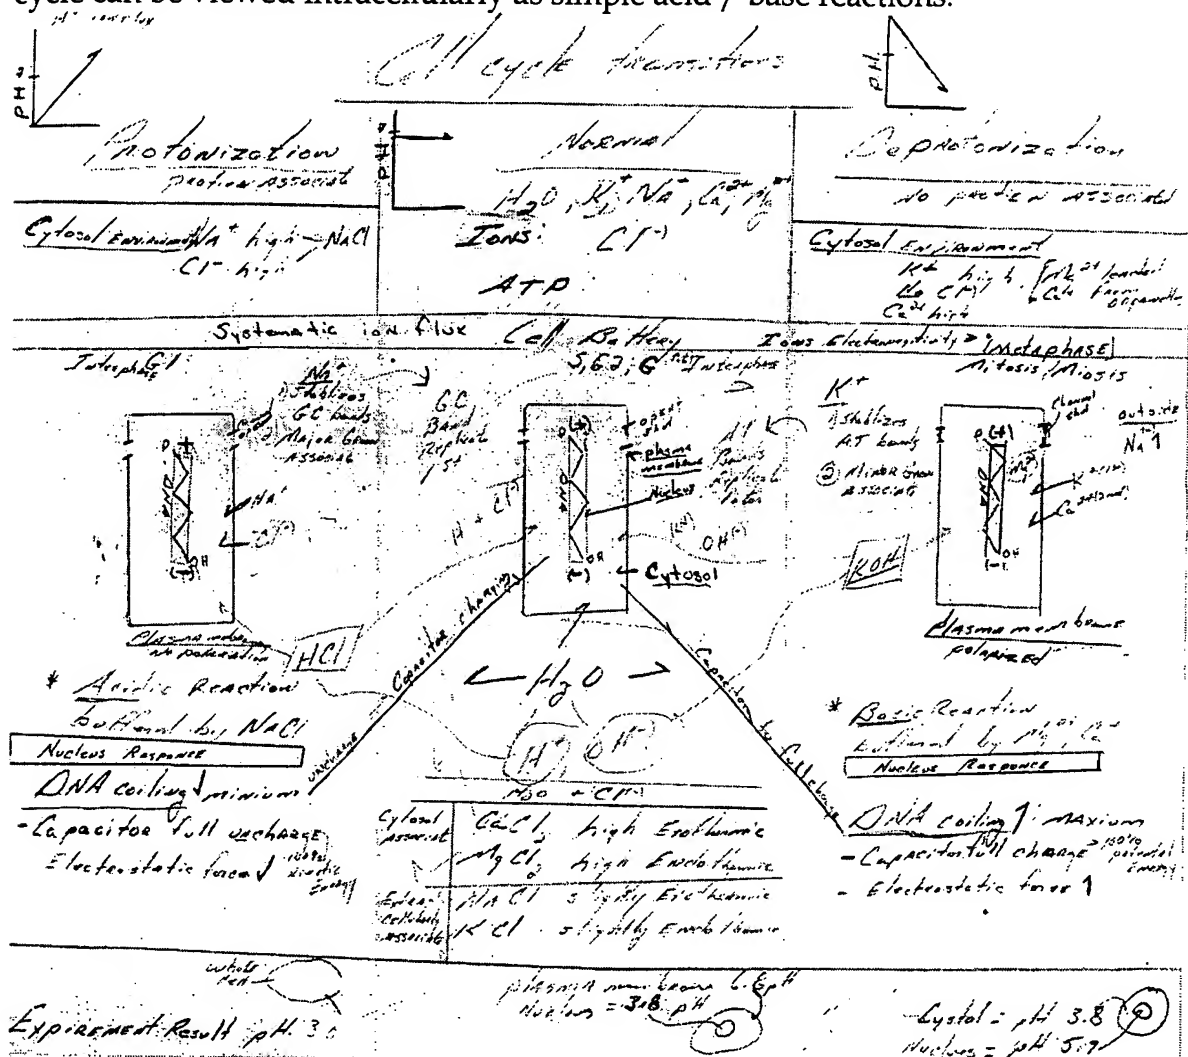 cycle can be viewed intracellularly as simple acid / base reactions.
Cell cycle transitions
PH
PH
PH
Protonization
Normal
Deprotonization
H2O, K+, Na+, Ca2+, Mg2+
No protien associated
Cytosol Environment Na+ high → NaCl
Cl- high
Ions: Cl(-)
ATP
Cytosol Environment
K+ high
No Cl(-)
Ca2+ high
Systematic ion flux
Cell Battery
Ions Electronegitivity > (Metaphase)
Mitosis/Miosis
Interphase G1
S, G2, G
Interphase
Na+
Stablizes
GC bonds
Major Groove
Associat
GC
Band
Replicat
1st
plasma
membrane
Nucleus
AT
Bands
Replicat
later
K+
Stablizes
AT bands
Minor Groove
Associat
channel
shd
outside
Na ↑
DNA
DNA
DNA
OH
OH
OH
Na+
Cl(-)
H + Cl(-)
OH(-)
Cytosol
KOH
HCl
Plasma membrane
no polarization
Plasma membrane
polarized
Capacitor charging
uncharge
Capacitor to full charge
← H2O →
H+
OH(-)
* Acidic Reaction
buffered by NaCl
Nucleus Response
DNA coiling ↓ minium
- Capacitor full uncharge
Electrostatic force ↓
Kinetic
Energy
* Basic Reaction
Nucleus Response
DNA coiling ↑ maxium
- Capacitor full charge
potential
Energy
- Electrostatic force ↑
H2O + Cl(-)
Cytosol
Associat
CaCl2 high Exothermic
MgCl2 high Endothermic
Extra
Cellularly
Associat
NaCl slightly Exothermic
KCl slightly Endothermic
whole
cell
Expirement Result pH 3
plasma membrane 6.8 pH
Nucleus = 3.8 pH
Cystol = pH 3.8
Nucleus = pH 5.9